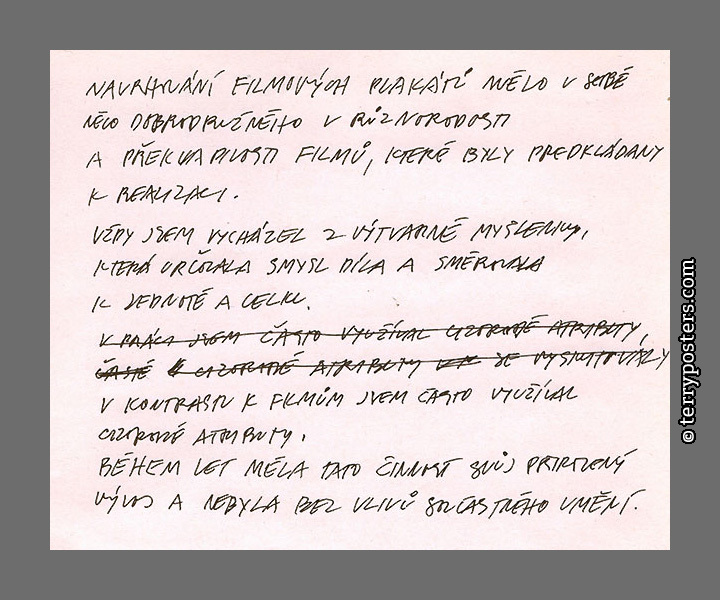 NAVRHOVÁNÍ FILMOVÝCH PLAKÁTŮ MĚLO V SOBĚ
NĚCO DOBRODRUŽNÉHO V RŮZNORODOSTI
A PŘEKVAPIVOSTI FILMŮ, KTERÉ BYLY PŘEDKLÁDANY
K REALIZACI.
VŽDY JSEM VYCHÁZEL Z VÝTVARNÉ MYŠLENKY,
KTERÁ URČOVALA SMYSL DÍLA A SMĚROVALA
K JEDNOTĚ A CELKU.
V PRÁCI JSEM ČASTO VYUŽÍVAL CIZORODÉ ATRIBUTY,
ČASTÉ CIZORODÉ ATRIBUTY SE VYSKYTOVALY
V KONTRASTU K FILMŮM JSEM ČASTO VYUŽÍVAL
CIZORODÉ ATRIBUTY.
BĚHEM LET MĚLA TATO ČINNOST SVŮJ PŘIROZENÝ
VÝVOJ A NEBYLA BEZ VLIVŮ SOUČASTNÉHO UMĚNÍ.
© terryposters.com